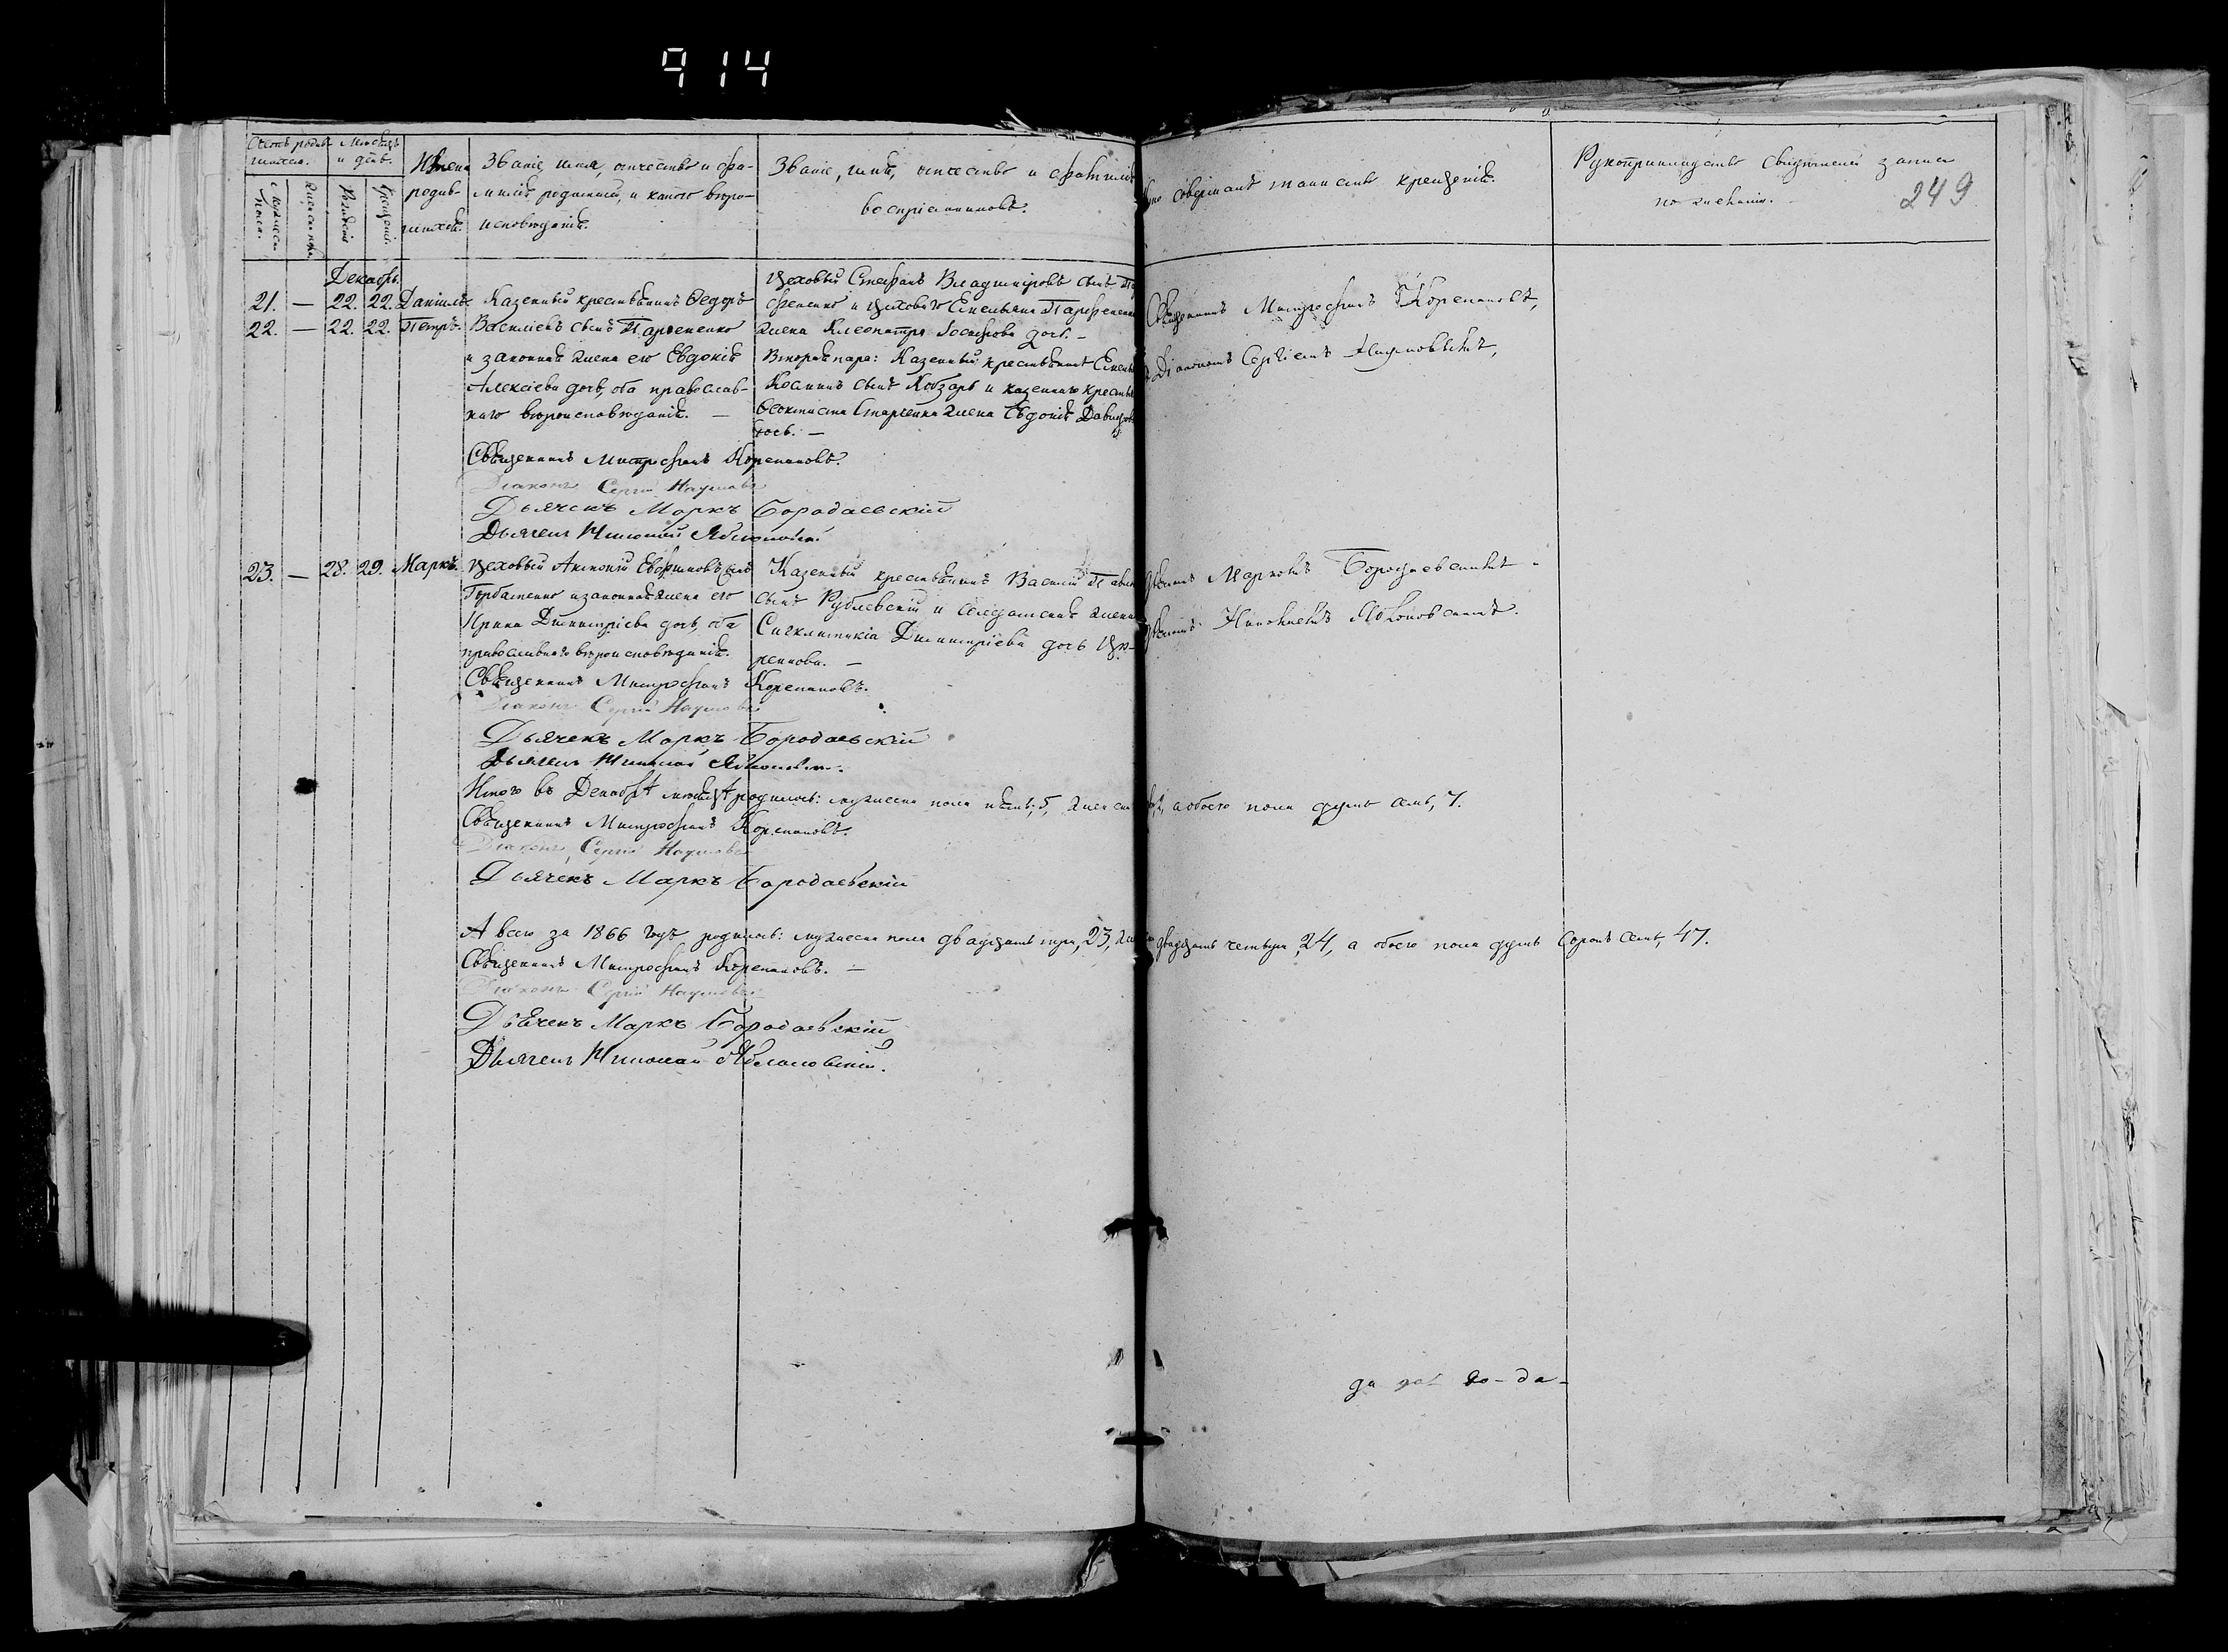 914
Счетъ родив- Мѣсяцъ
шихся. и день.
Имена
родив-
шихся.
Званіе, имя, отчество и фа-
милія родителей, и какого вѣро-
исповѣданія.
Званіе, имя, отчество и фамилія
воспріемниковъ.
Кто совершалъ таинство крещенія.
Рукоприкладство свидѣтелей записи
по желанію.
249
Мужеска
пола.
Женска
Рожденія
Крещенія.
Декабрь.
21. — 22. 22. Даніилъ
22. — 22. 22. Петръ.
Казенный крестьянинъ Ѳедоръ
Василіевъ сынъ Парѳененко
и законная жена его Евдокія
Алексіева дочь, оба православ-
наго вѣроисповѣданія. —
Цеховый Стефанъ Владиміровъ сынъ
и цеховаго Емельяна Парфененка
жена Клеопатра Іосифова дочь. —
Вторая пара: Казенный крестьянинъ
сынъ Кобзарь и казеннаго
Ѳеоктиста Старченка жена Евдокія
дочь. —
Священникъ Митрофанъ Корепановъ,
Діакономъ Сергіемъ Наумовымъ,
Священникъ Митрофанъ Корепановъ.
Діаконъ Сергій Наумовъ
Дьячекъ Маркъ Бородаевскій
Дьячекъ Николай Яблоновскій
23. — 28. 29. Маркъ.
Цеховый Антоній Евфимовъ сынъ
Горбатенко и законная жена его
Ирина Димитріева дочь, оба
православнаго вѣроисповѣданія.
Казенный крестьянинъ Василій
сынъ Рублевскій и солдатская жена
Сигклитикія Димитріева дочь
Марковъ Бородаевскимъ
Николаемъ Яблоновскимъ.
Священникъ Митрофанъ Корепановъ.
Діаконъ Сергій Наумовъ
Дьячекъ Маркъ Бородаевскій
Дьячекъ Николай Яблоновскій.
Итого въ Декабрѣ мѣсяцѣ родилось: мужеска пола пять, 5, женска 2, а обоего пола душъ семь, 7.
Священникъ Митрофанъ Корепановъ.
Діаконъ Сергій Наумовъ
Дьячекъ Маркъ Бородаевскій
А всего за 1866 годъ родилось: мужеска пола двадцать три, 23, двадцать четыре, 24, а обоего пола душъ сорокъ семь, 47.
Священникъ Митрофанъ Корепановъ. —
Діаконъ Сергій Наумовъ
Дьячекъ Маркъ Бородаевскій
Дьячекъ Николай Яблоновскій.